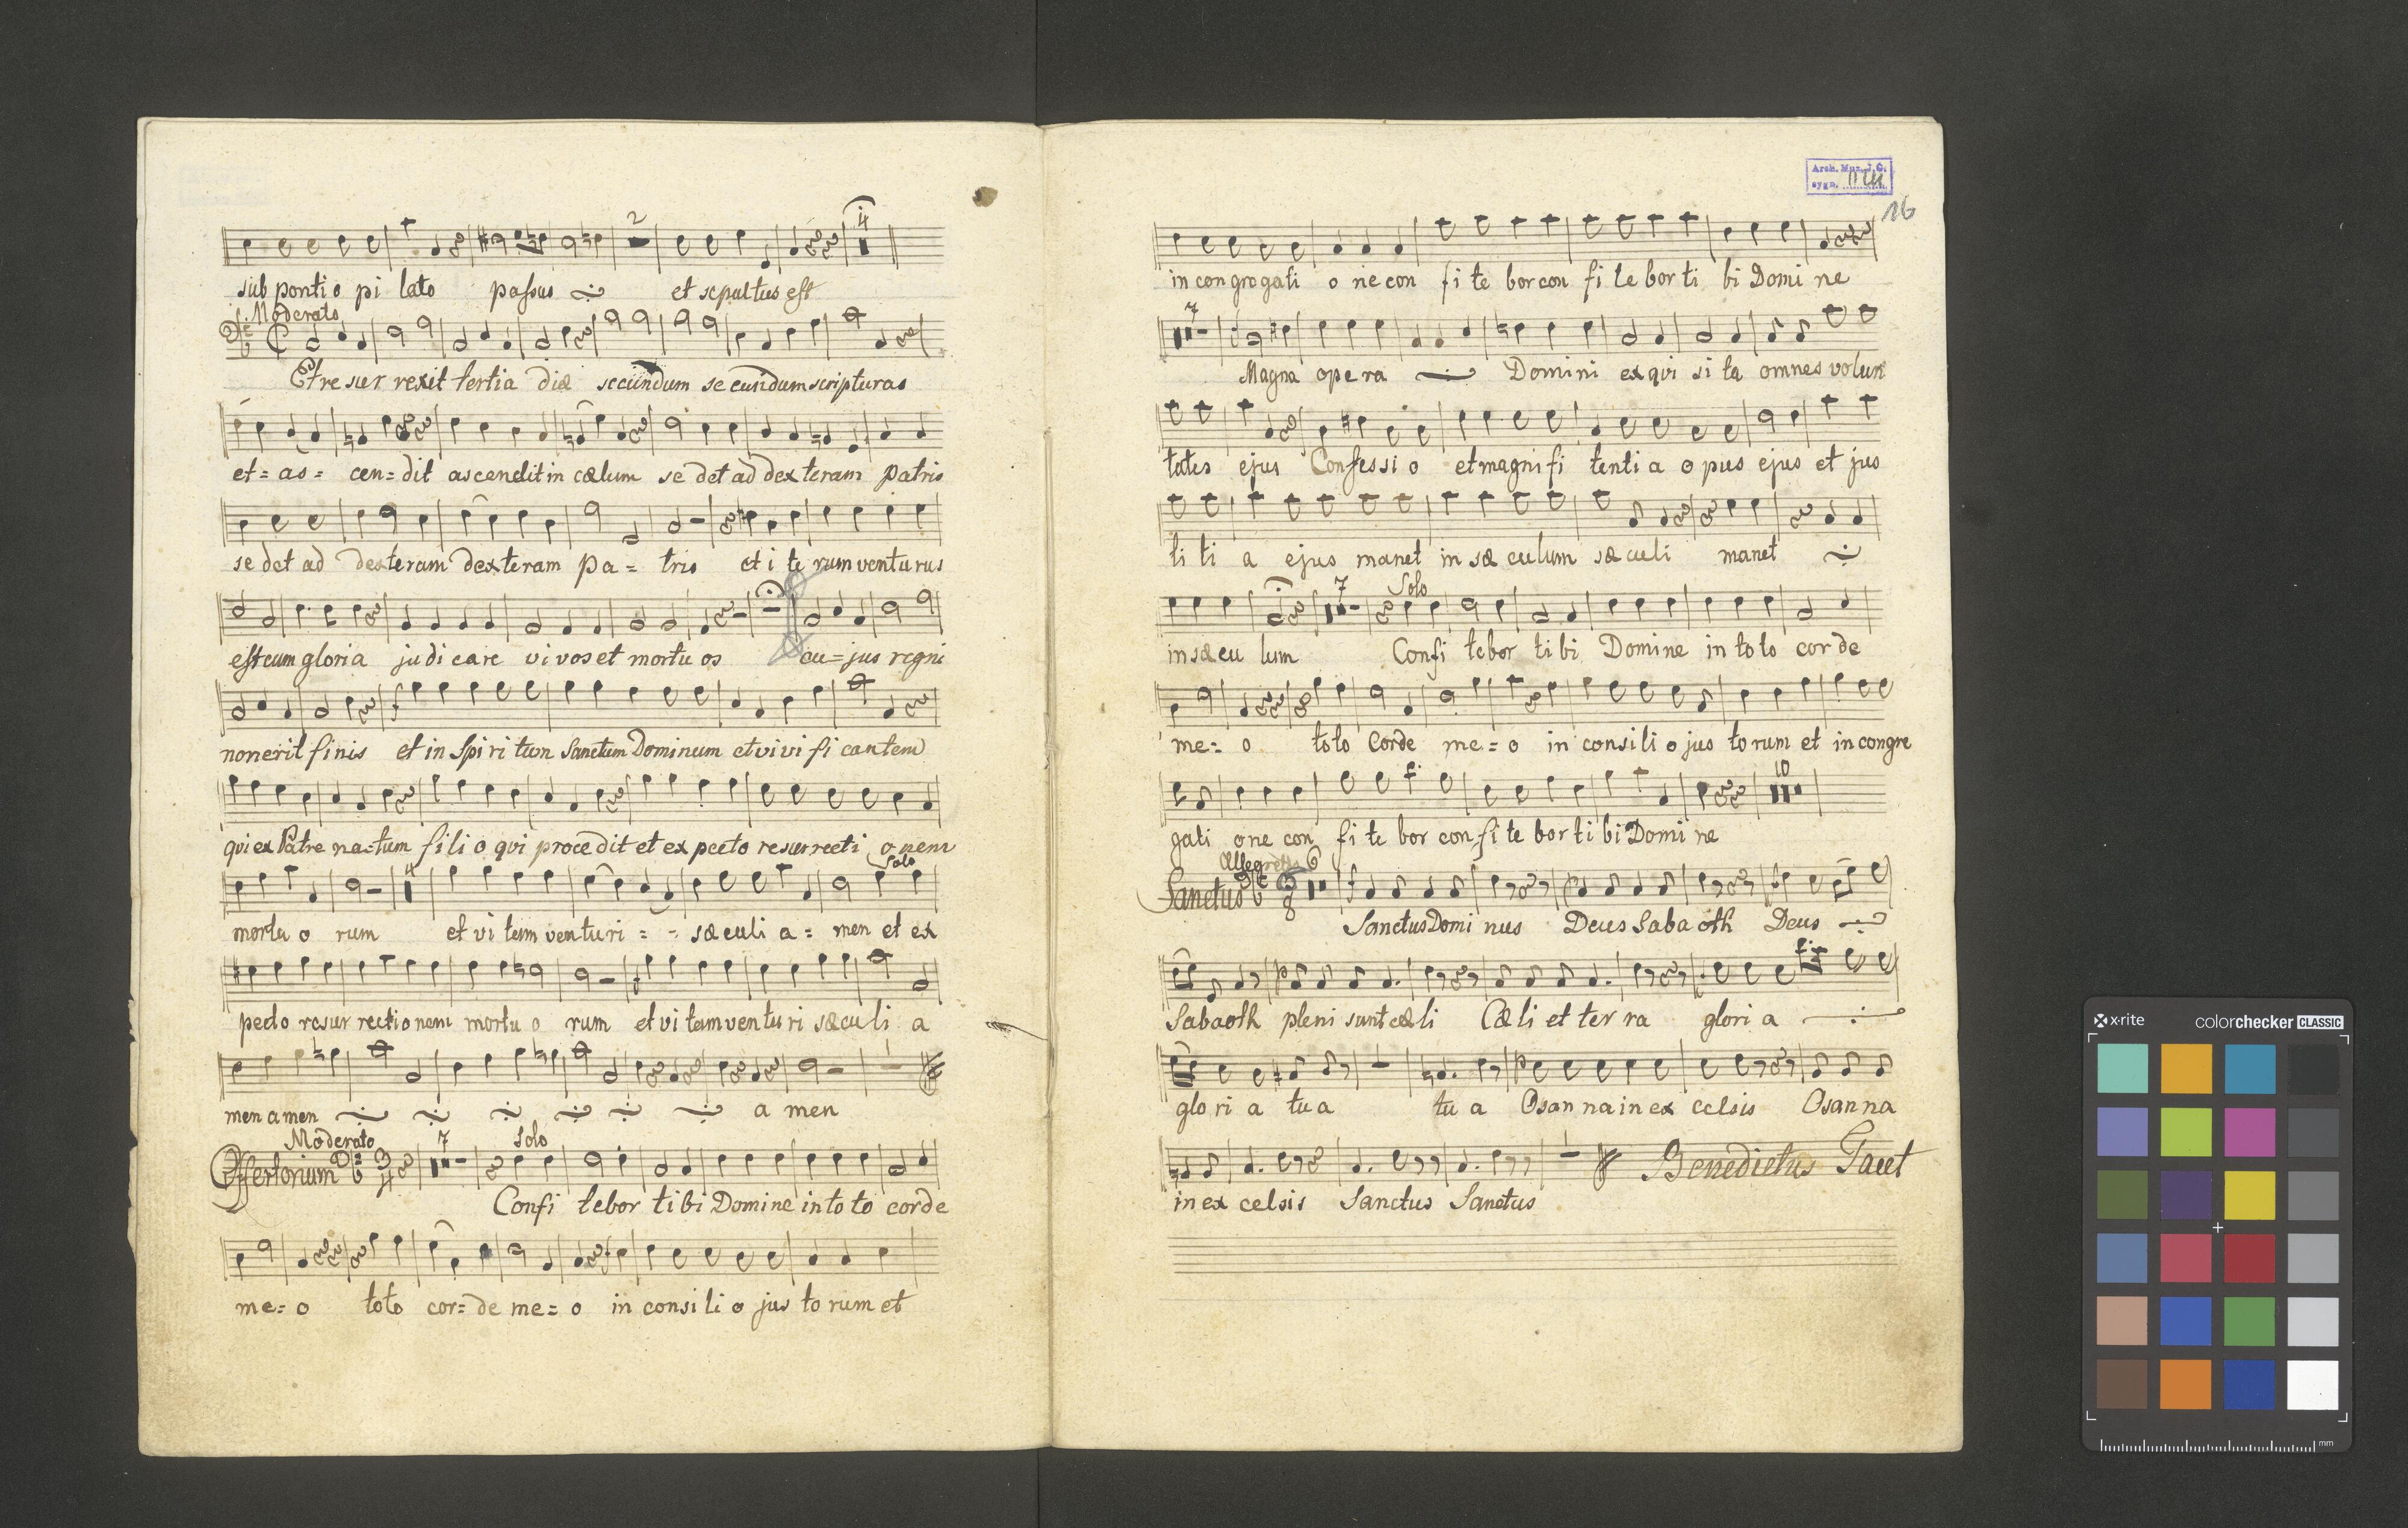 2 4
sub pontio pi lato passus et sepultus est
Moderato
Et re sur rexit tertia diæ secundum se cundum scripturas
et = as = cen = dit ascendit in cælum se det ad dexteram patris
se det ad dexteram dexteram pa = tris et i te rum venturus
est cum gloria judi care vi vos et mortu os cu = jus regni
non erit finis et in Spi ri tum Sanctum Dominum et vi vi fi cantem
qui ex Patre na = tum fi li o qui proce dit et ex pecto resurrecti onem
4 Solo
mortu o rum et vi tam venturi = = sæculi a = men et ex
pecto resur rectionem mortu o rum et vi tam ventu ri sæcu li a
men amen a men
Moderato 7 Solo
Offertorium 3 4
Confi tebor ti bi Domine in to to corde
me = o toto cor = de me = o in consi li o jus to rum et
Arch. Muz. J. G.
sygn.
16
in con gre gati o ne con fi te bor con fi te bor ti bi Domi ne
7
Magna opera Domini ex qui si ta omnes volun
tates ejus Confessi o et magnifi tenti a opus ejus et jus
ti ti a ejus manet in sæ culum sæ culi manet
7 Solo
in sæ cu lum Confi tebor ti bi Domine in to to cor de
me = o toto Corde me = o in consi li o jus to rum et in congre
10
gati one con fi te bor con fi te bor ti bi Domi ne
Allegretto 6
Sanctus 6 8
Sanctus Domi nus Deus Saba oth Deus
Sabaoth pleni sunt cæli Cæ li et ter ra glori a
glo ri a tu a tu a Osan na in ex celsis Osanna
Benedictus Tacet
in ex celsis Sanctus Sanctus
x-rite colorchecker CLASSIC
mm